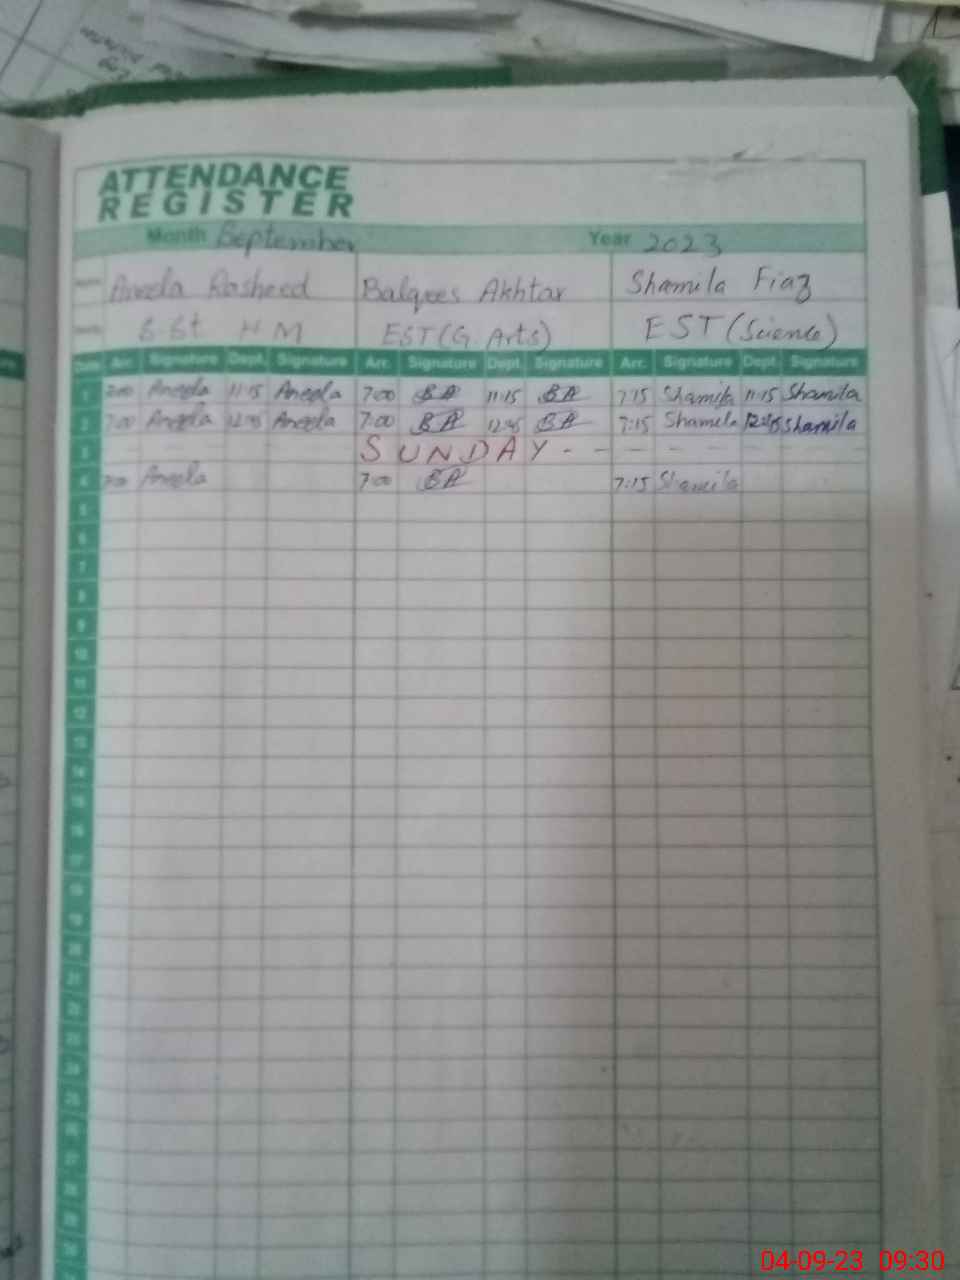 ATTENDANCE
REGISTER
Month September Year 2023
Name Aneela Rasheed Balqees Akhtar Shamila Fiaz
S.St H M EST(G. Arts) EST (Science)
Date Arr. Signature Dept. Signature Arr. Signature Dept. Signature Arr. Signature Dept. Signature
1 7:00 Aneela 11:15 Aneela 7:00 BA 11:15 BA 7:15 Shamila 11:15 Shamila
2 7:00 Aneela 12:45 Aneela 7:00 BA 12:45 BA 7:15 Shamila 12:45 Shamila
3 SUNDAY
4 7:00 Aneela 7:00 BA 7:15 Shamila
5
6
7
8
9
10
11
12
13
14
15
16
17
18
19
20
21
22
23
24
25
26
27
28
29
30
04-09-23 09:30